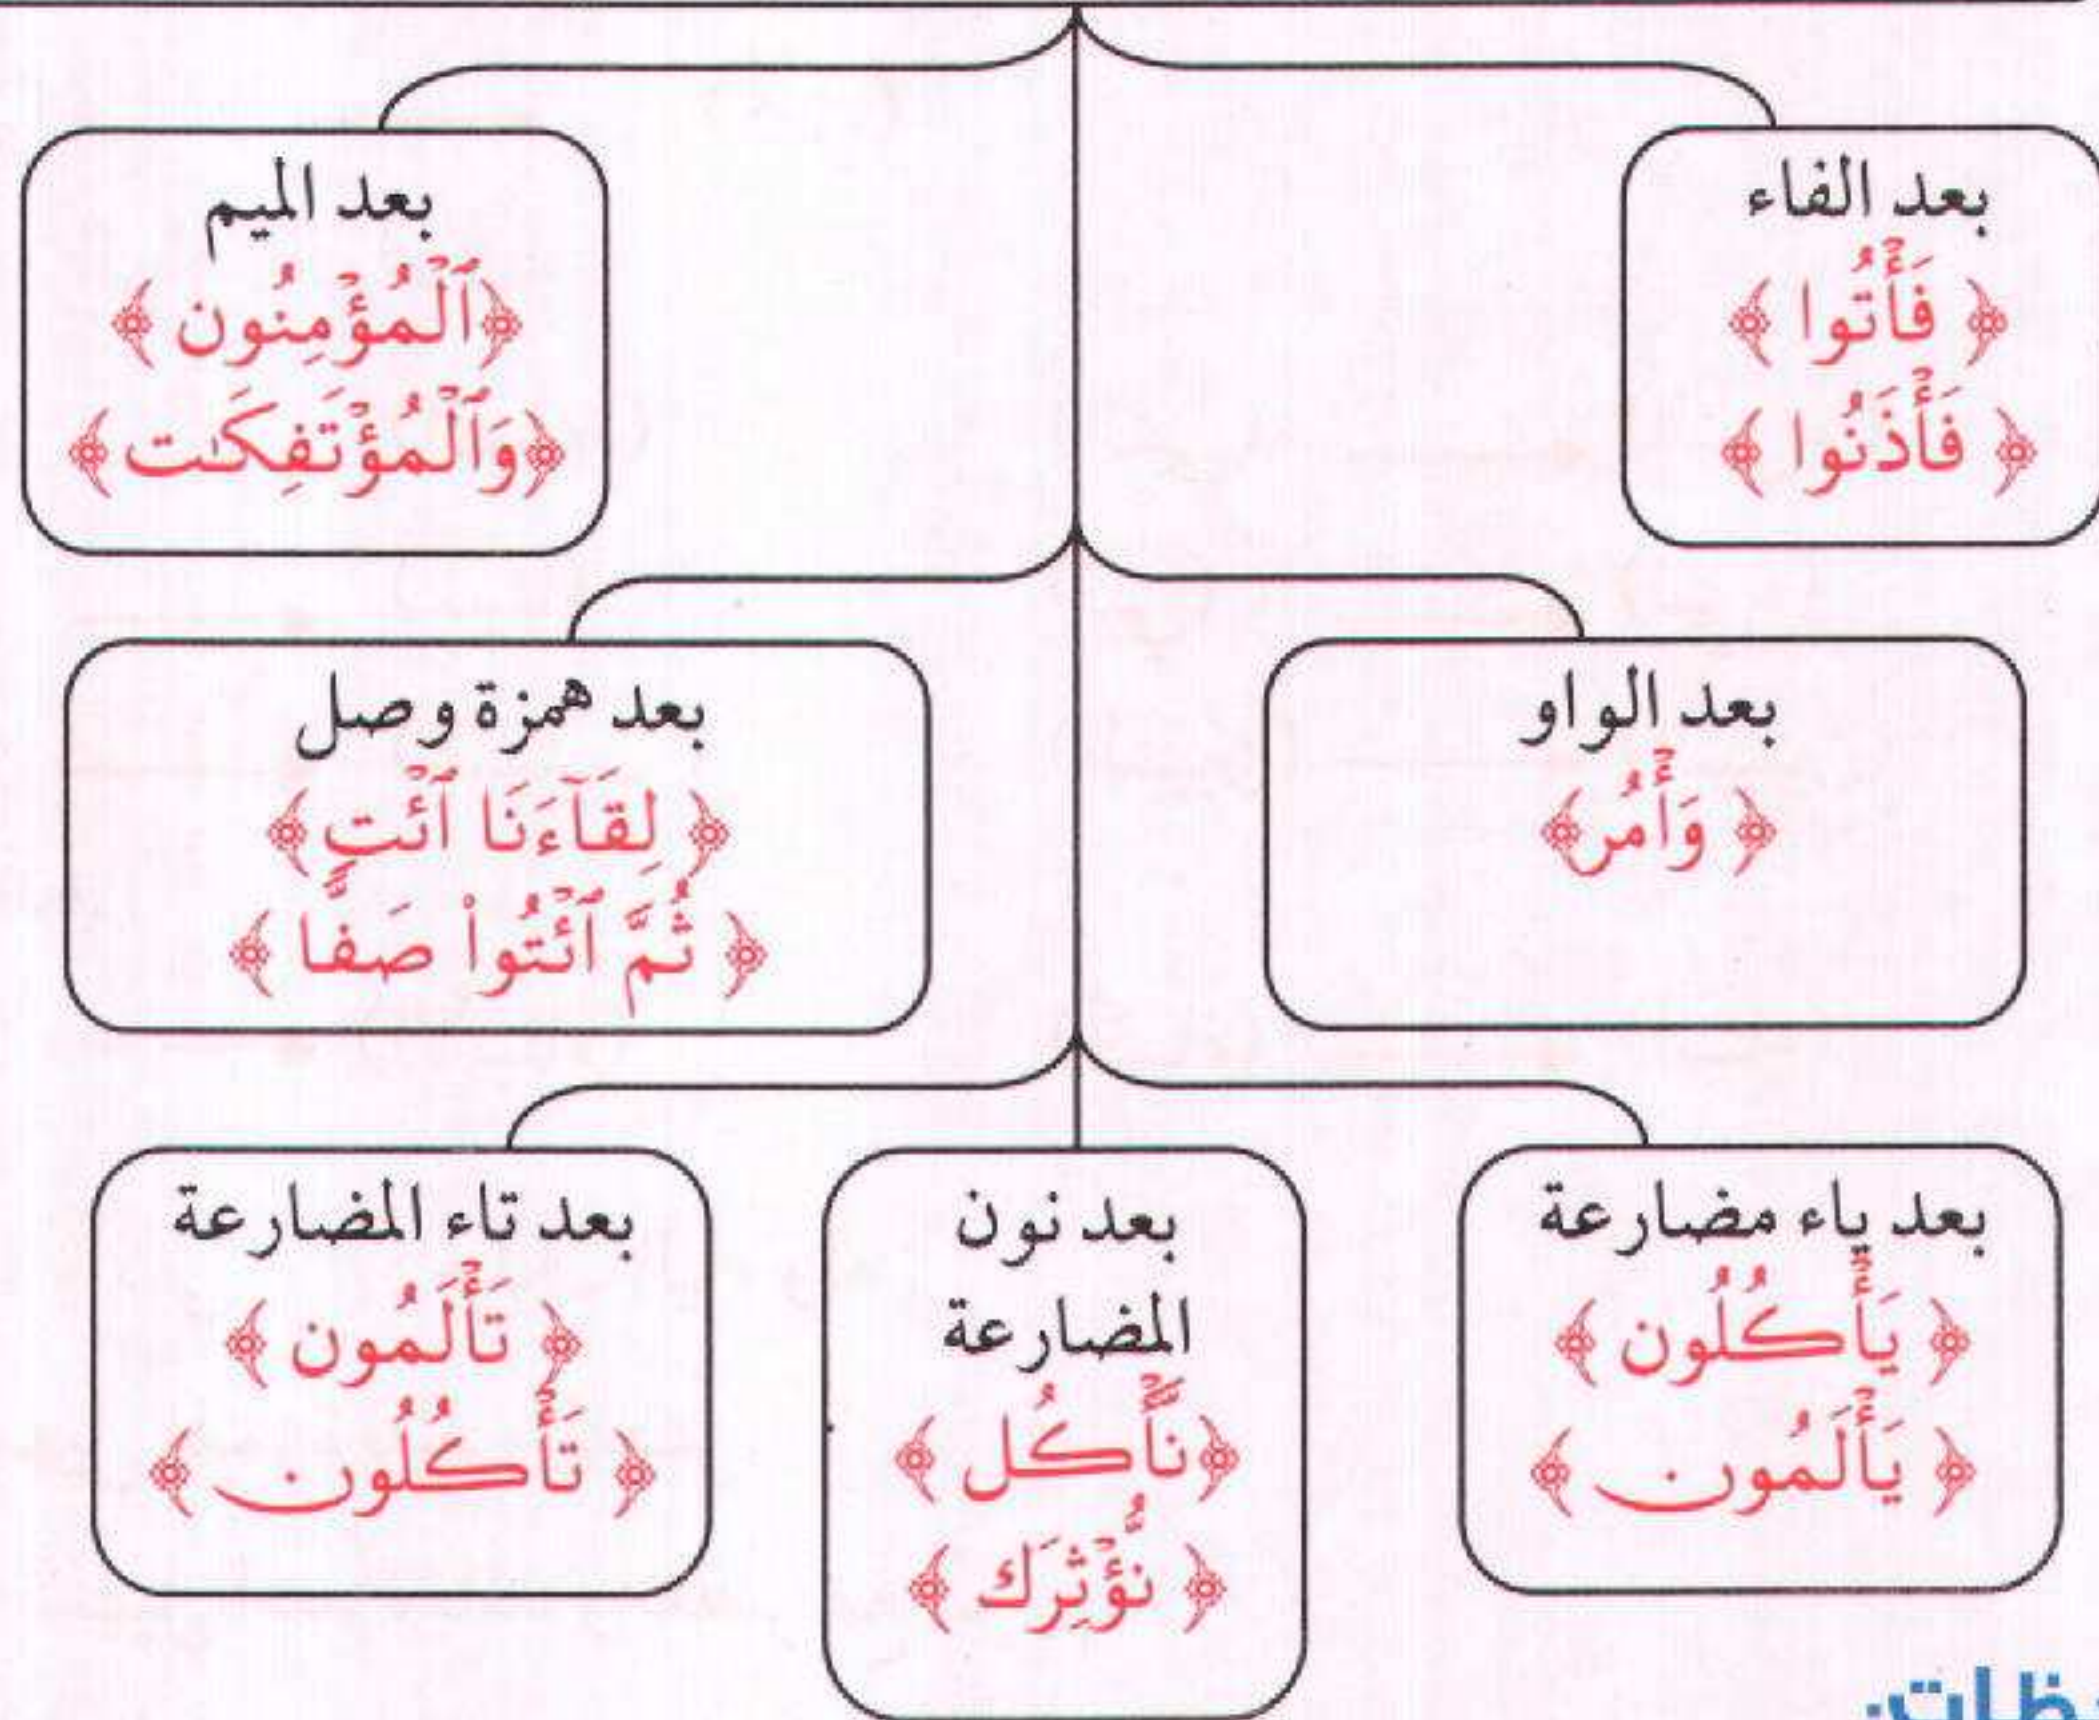 بعد الفاء
﴿ فَأْتُوا ﴾
﴿ فَأْذَنُوا ﴾
بعد الميم
﴿ٱلْمُؤْمِنُون ﴾
﴿وَٱلْمُؤْتَفِكَٰت ﴾
بعد الواو
﴿ وَأْمُر﴾
بعد همزة وصل
﴿ لِقَآءَنَا ٱئْتِ ﴾
﴿ ثُمَّ ٱئْتُواْ صَفًّا ﴾
بعد ياء مضارعة
﴿ يَأْكُلُون ﴾
﴿ يَأْلَمُون ﴾
بعد نون
المضارعة
﴿نَّأْكُل ﴾
﴿ نُّؤْثِرَك ﴾
بعد تاء المضارعة
﴿ تَأْلَمُون ﴾
﴿ تَأْكُلُون ﴾